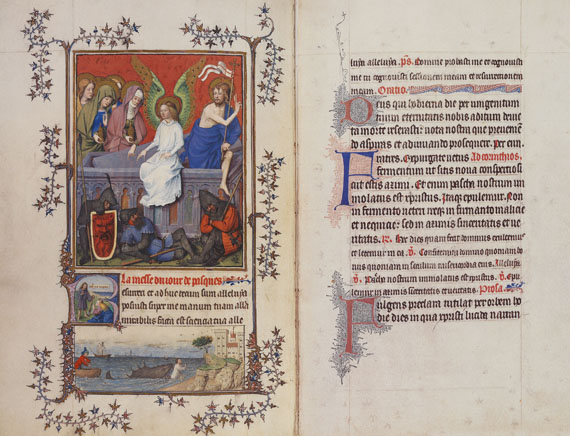 La messe du iour de pasques
esurrexi et adhuc tecum sum alleluya
posuisti super me manum tuam alla
mirabilis facta est sciencia tua alle
luya alleluya. ps. Domine probasti me et cognouisti
me tu cognouisti sessionem meam et resurrectionem
meam. Oratio.
Deus qui hodierna die per unigenitum
tuum eternitatis nobis aditum deuic
ta morte reserasti: uota nostra que preueniendo
aspiras et adiuuando prosequere. Per eun
Fratres. Expurgate uetus Ad corinthios.
fermentum ut sitis noua conspersio si
cut estis azimi. Et enim pascha nostrum im
molatus est xpistus. Itaque epulemur. Non
in fermento ueteri neque in fermento malicie
et nequicie: sed in azimis sinceritatis et ue
ritatis. Hec dies quam fecit dominus exultemus
et letemur in ea. V. Confitemini domino quoniam bo
nus quoniam in seculum misericordia eius. Alleluya.
V. Pascha nostrum immolatus est xpistus. V. Epu
lemur in azimis sinceritatis et ueritatis. Prosa.
Fulgens preclara rutilat per orbem ho
die dies in qua xpristi lucida narran